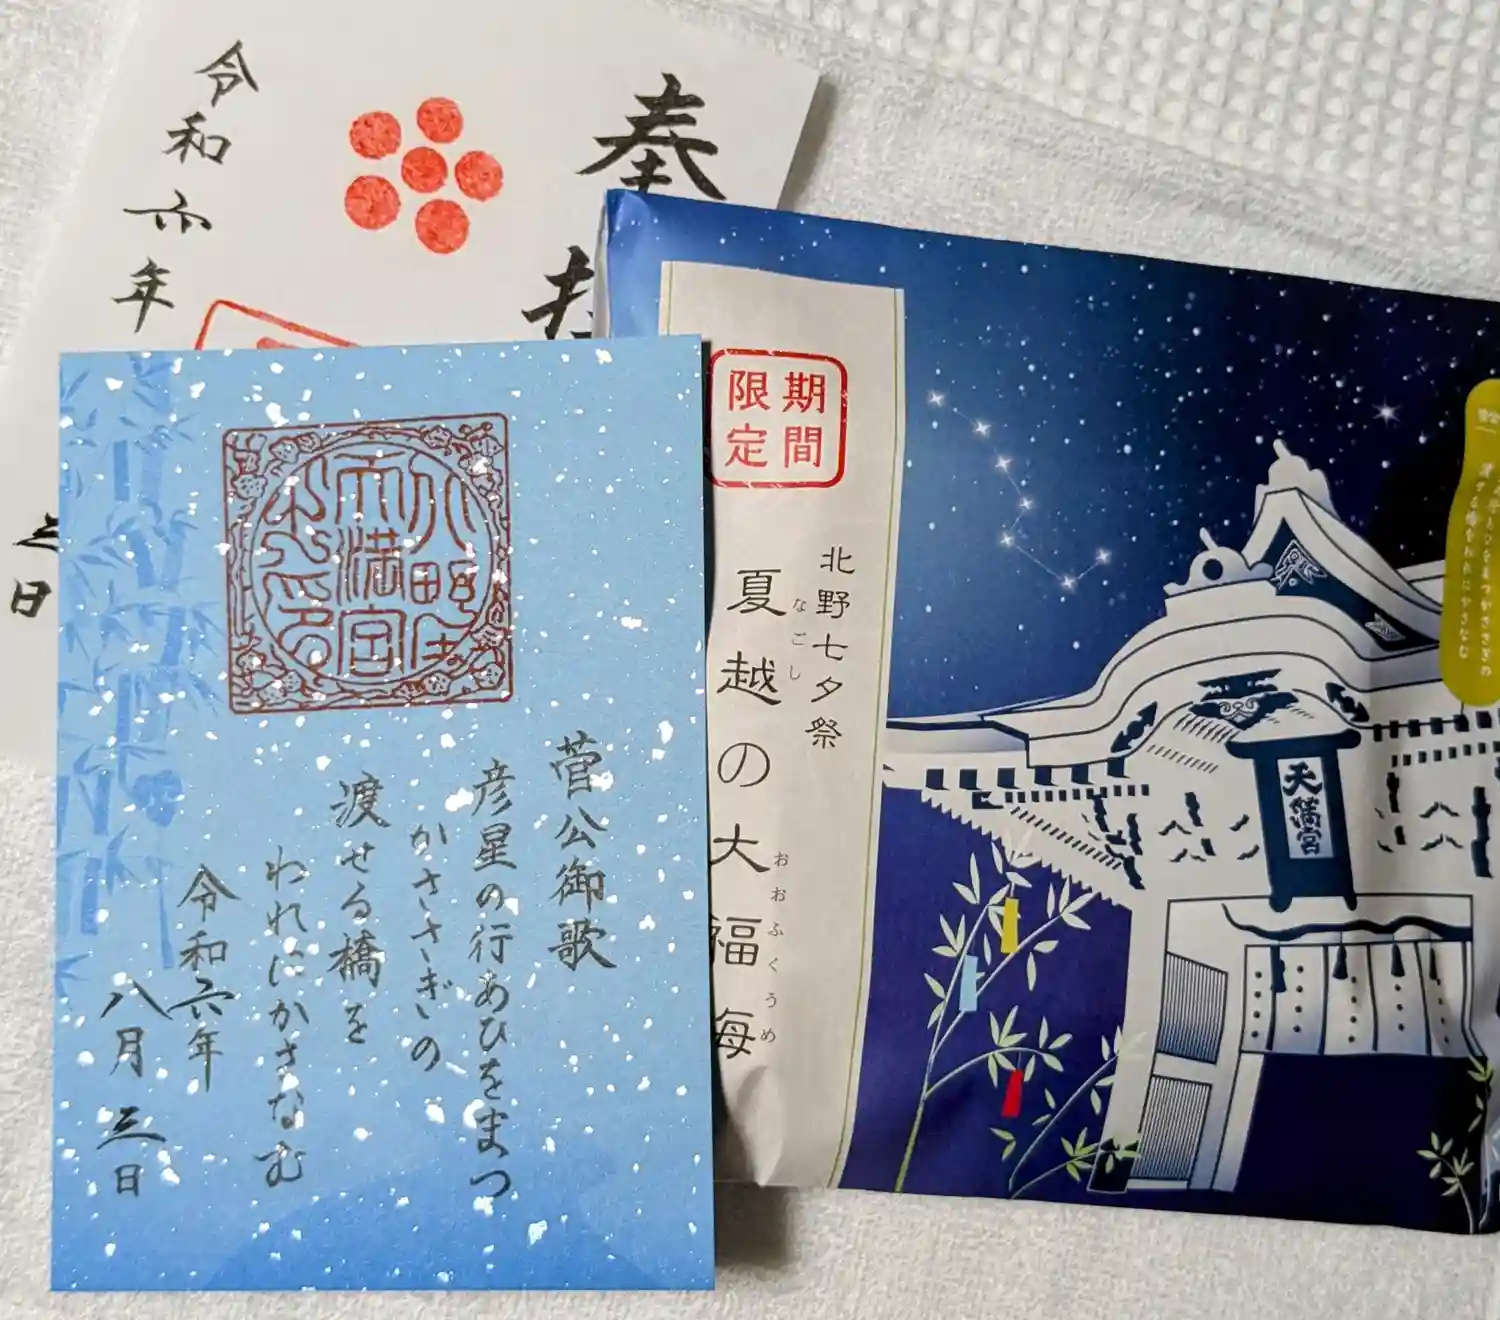 奉
令和六年
三日
北野天満宮印
菅公御歌
彦星の行あひをまつ
かささぎの
渡せる橋を
われにかさなむ
令和六年
八月三日
期間
限定
北野七夕祭
夏越の大福梅
なごし
おおふくうめ
天満宮